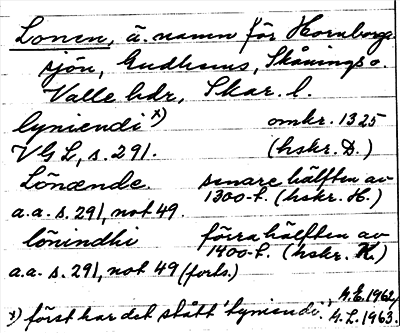 Lonen, ä. namn för Hornborga-
sjön, Gudhems, Skånings o.
Valle hdr, Skar. l.
lyniendi x) omkr. 1325
VGL, s. 291. (hskr. D.)
Lönænde. senare hälften av
1300-t. (hskr. H.)
a.a. s. 291, not 49.
lönindhi förra hälften av
1400-t. (hskr. K.)
a.a. s. 291, not 49 (forts.)
x) först har det stått 'lyniendi'.
1962,
1963.